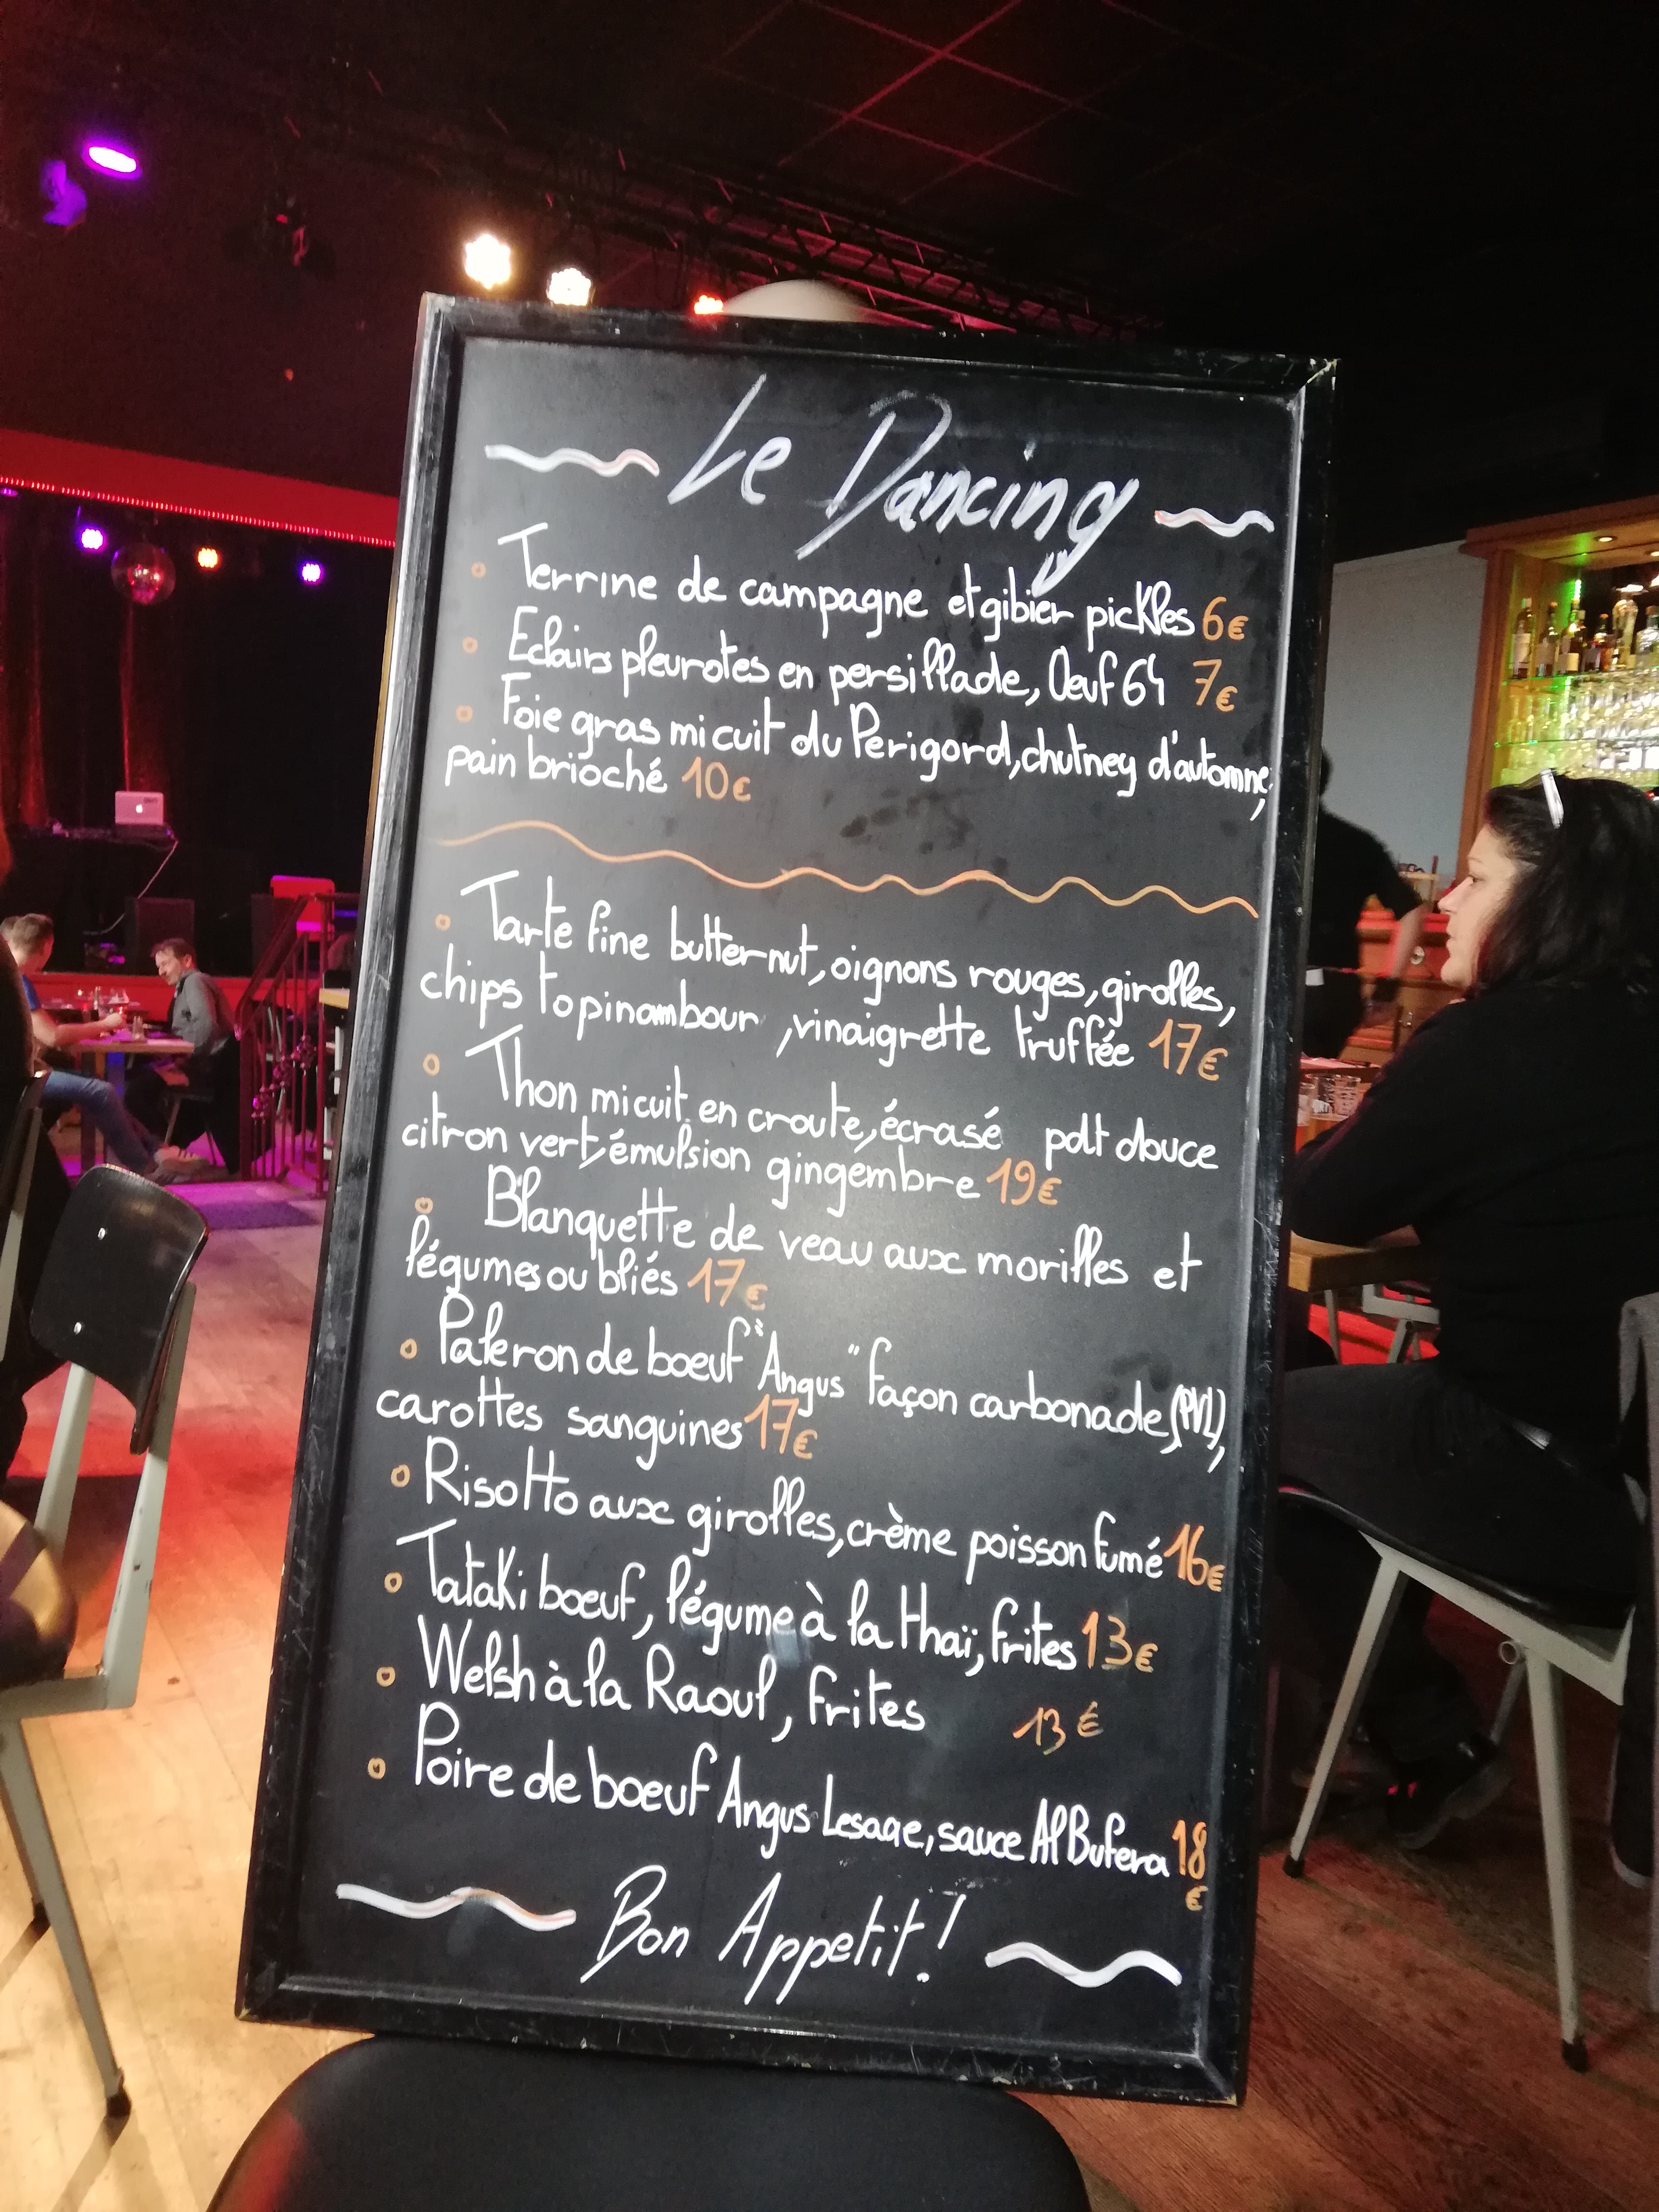 Le Dancing
Terrine de campagne et gibier pickles 6€
Eclairs pleurotes en persillade, Oeuf 64 7€
Foie gras mi cuit du Périgord, chutney d'automne,
pain brioché 10€
Tarte fine butternut, oignons rouges, girolles,
chips topinambour, vinaigrette truffée 17€
Thon mi cuit en croute, écrasé pdt douce
citron vert, émulsion gingembre 19€
Blanquette de veau aux morilles et
légumes oubliés 17€
Paleron de boeuf "Angus" façon carbonade, (PVL),
carottes sanguines 17€
Risotto aux girolles, crème poisson fumé 16€
Tataki boeuf, légume à la thaï, frites 13€
Welsh à la Raoul, frites 13€
Poire de boeuf Angus Lesage, sauce Al Bufera 18
€
Bon Appetit !